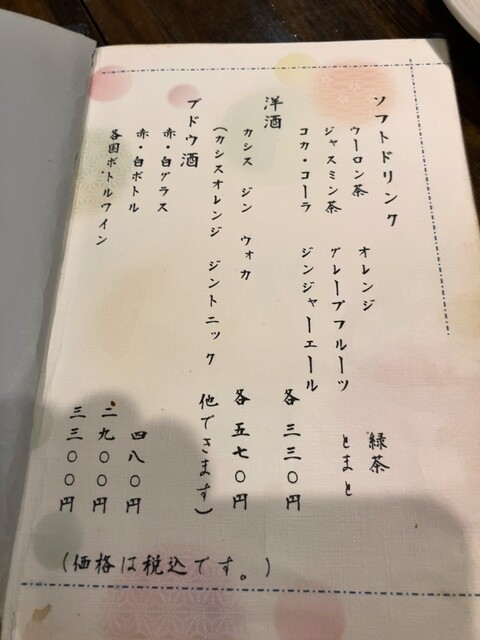 ソフトドリンク
ウーロン茶 オレンジ 緑茶
ジャスミン茶 グレープフルーツ とまと
コカ・コーラ ジンジャーエール 各 三三〇円
洋酒
カシス ジン ウォカ 各 五七〇円
(カシスオレンジ ジントニック 他できます)
ブドウ酒
赤・白グラス 四八〇円
赤・白ボトル 二九〇〇円
各国ボトルワイン 三三〇〇円
(価格は税込です。)